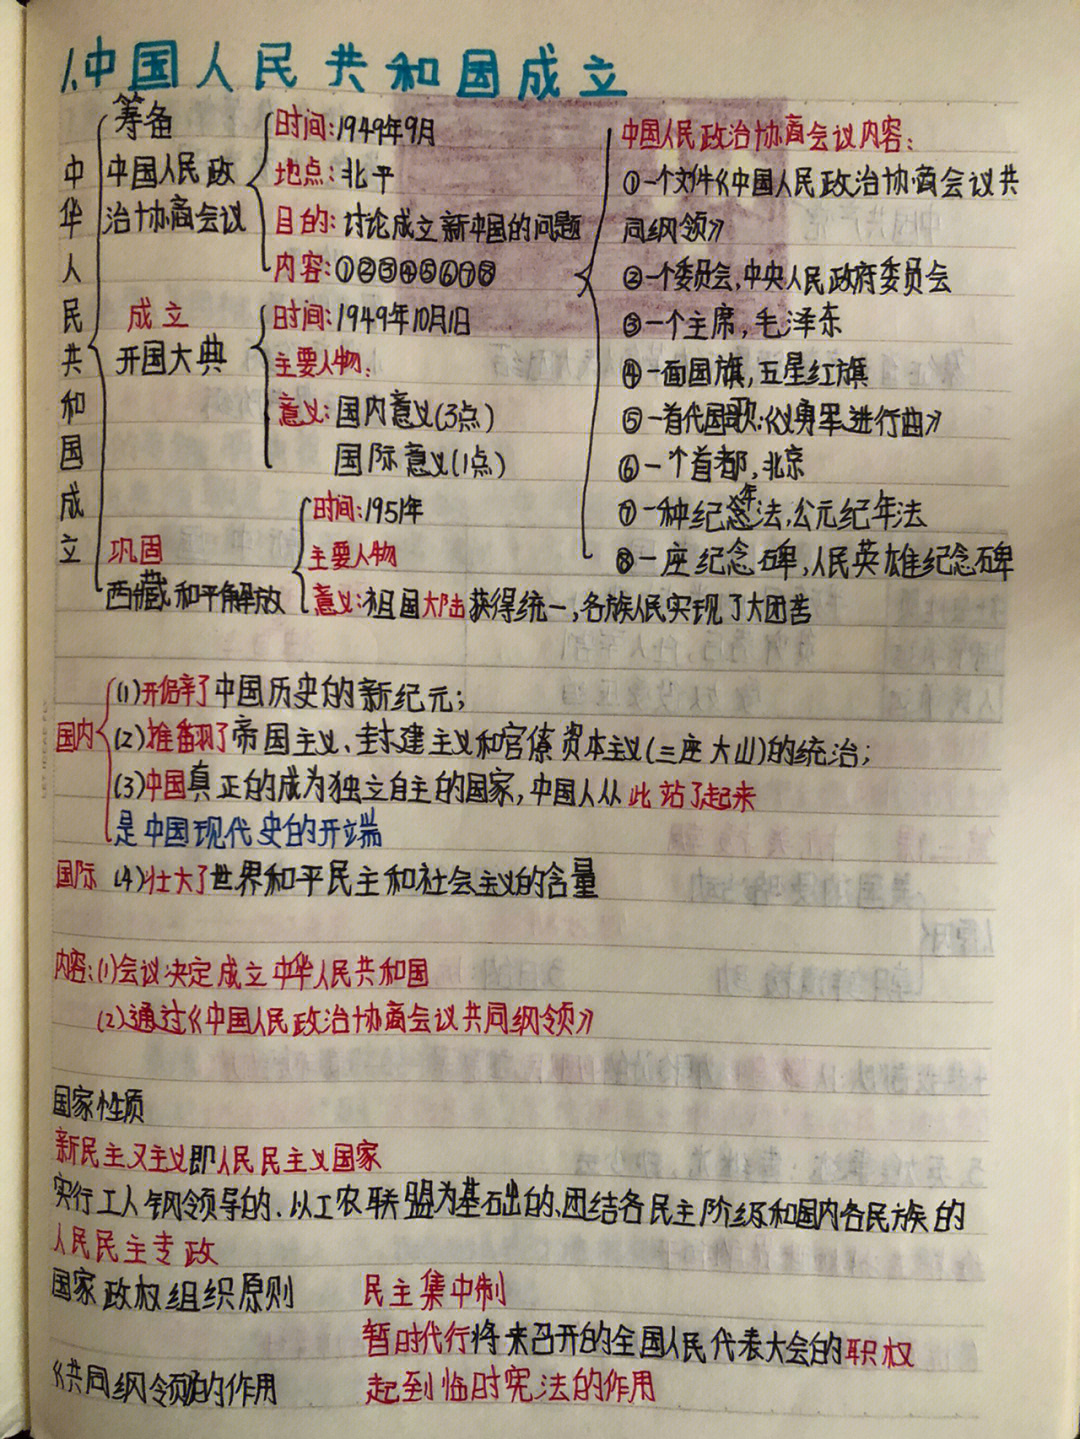 1.中国人民共和国成立
中华人民共和国成立
筹备
中国人民政
治协商会议
时间:1949年9月
地点:北平
目的:讨论成立新中国的问题
内容:①②③④⑤⑥⑦⑧
中国人民政治协商会议内容:
①一个文件《中国人民政治协商会议共
同纲领》
②一个委员会,中央人民政府委员会
③一个主席,毛泽东
④一面国旗,五星红旗
⑤一首代国歌:《义勇军进行曲》
⑥一个首都,北京
⑦一种纪年法,公元纪年法
⑧一座纪念碑,人民英雄纪念碑
成立
开国大典
时间:1949年10月1日
主要人物:
意义:国内意义(3点)
国际意义(1点)
巩固
西藏和平解放
时间:1951年
主要人物
意义:祖国大陆获得统一,各族人民实现了大团苦
国内
(1)开僻了中国历史的新纪元;
(2)推翻了帝国主义、封建主义和官僚资本主义(三座大山)的统治;
(3)中国真正的成为独立自主的国家,中国人从此站了起来
是中国现代史的开端
国际 (4)壮大了世界和平民主和社会主义的含量
内容:(1)会议决定成立中华人民共和国
(2)通过《中国人民政治协商会议共同纲领》
国家性质
新民主义主义即人民民主义国家
实行工人领导的.以工农联盟为基石出的、团结各民主阶级和国内各民族的
人民民主专政
国家政权组织原则 民主集中制
暂时代行将来召开的全国人民代表大会的职权
《共同纲领》的作用 起到临时宪法的作用